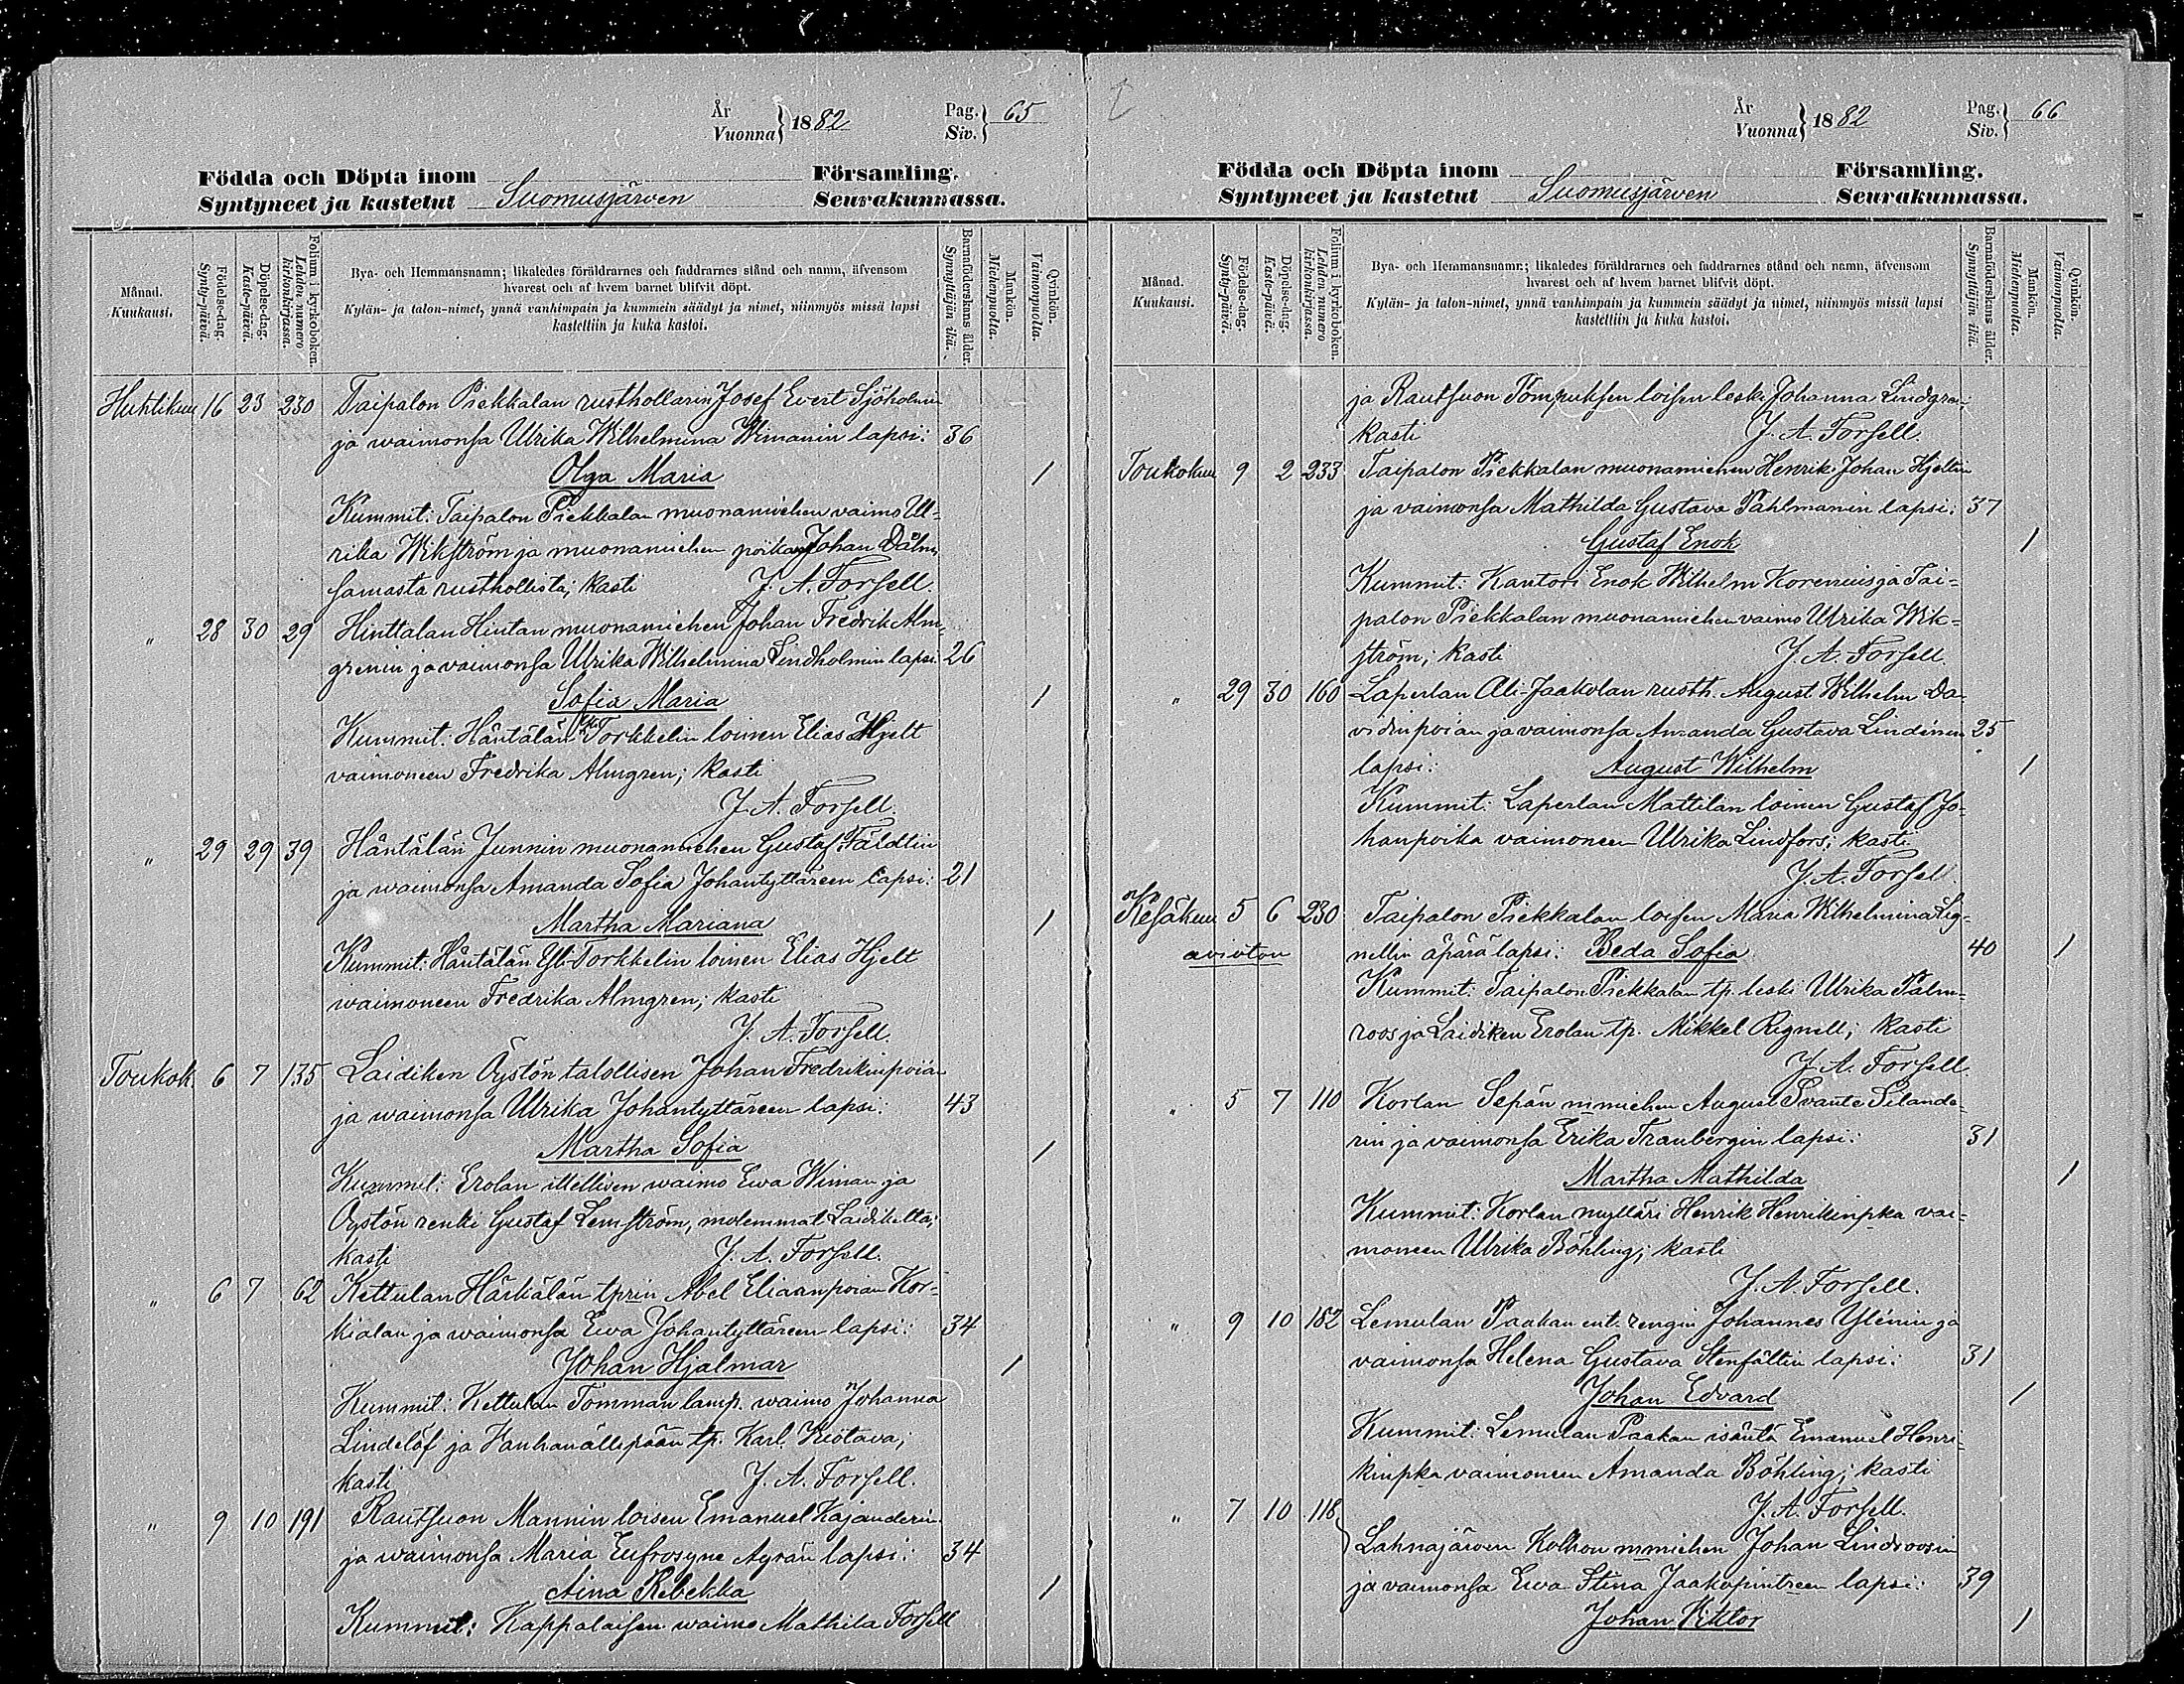 År
Vuonna } 1882
Pag.
Siv. } 65
Födda och Döpta inom Församling.
Syntyneet ja kastetut Suomusjärven Seurakunnassa.
Månad.
Kuukausi.
Födelse-dag.
Synty-päivä.
Döpelse-dag.
Kaste-päivä.
Folium i kyrkoboken.
Lehden numero kirkonkirjassa.
Bya- och Hemmansnamn; likaledes föräldrarnes och faddrarnes stånd och namn, äfvensom
hvarest och af hvem barnet blifvit döpt.
Kylän- ja talon-nimet, ynnä vanhimpain ja kummein säädyt ja nimet, niinmyös missä lapsi
kastettiin ja kuka kastoi.
Barnaföderskans ålder.
Synnyttäjän ikä.
Mankön.
Miehenpuolta.
Qvinkön.
Vaimonpuolta.
Huhtikuu 16 23 230 Taipalon Piekkalan rusthollarin Josef Evert Sjöholmin
ja waimonsa Ulrika Wilhelmina Wimanin lapsi: 36
Olga Maria 1
Kummit: Taipalon Piekkalan muonamiehen vaimo Ul-
rika Wikström ja muonamiehen poika Johan Dalm,
samasta rusthollista; kasti J. A. Forsell.
" 28 30 29 Hinttalan Hintan muonamiehen Johan Fredrik Alm-
grenin ja vaimonsa Ulrika Wilhelmina Lindholmin lapsi: 26
Sofia Maria 1
Kummit: Häntälän Y. Torkkelin loinen Elias Hjelt
vaimoneen Fredrika Almgren; kasti
J. A. Forsell.
" 29 29 39 Häntälän Junnin muonamiehen Gustaf Fäldtin
ja waimonsa Amanda Sofia Johantyttären lapsi: 21
Martha Mariana 1
Kummit: Häntälän Yli-Torkkelin loinen Elias Hjelt
waimoneen Fredrika Almgren; kasti
J. A. Forsell.
Toukok. 6 7 135 Laidiken Öystön talollisen Johan Fredrikinpoian
ja waimonsa Ulrika Johantyttäreen lapsi: 43
Martha Sofia 1
Kummit: Erolan itellisen waimo Ewa Wiman ja
Öystön renki Gustaf Lemström, molemmat Laidikelta;
kasti J. A. Forsell.
" 6 7 62 Kettulan Härkälän tprin Abel Elianpoian Kor-
kialan ja waimonsa Ewa Johantyttäreen lapsi: 34
Johan Hjalmar 1
Kummit: Kettulan Tomman lamp. waimo Johanna
Lindelöf ja tp. Karl Kiötava;
kasti J. A. Forsell.
" 9 10 191 Rautsuon Mannin loisen Emanuel Kajanderin
ja waimonsa Maria Eufrosyne Ayrän lapsi: 34
Aina Rebekka 1
Kummit: Kappalaisen waimo Mathila Forsell
År
Vuonna } 1882
Pag.
Siv. } 66
Födda och Döpta inom Församling.
Syntyneet ja kastetut Suomusjärven Seurakunnassa.
Månad.
Kuukausi.
Födelse-dag.
Synty-päivä.
Döpelse-dag.
Kaste-päivä.
Folium i kyrkoboken.
Lehden numero kirkonkirjassa.
Bya- och Hemmansnamn; likaledes föräldrarnes och faddrarnes stånd och namn, äfvensom
hvarest och af hvem barnet blifvit döpt.
Kylän- ja talon-nimet, ynnä vanhimpain ja kummein säädyt ja nimet, niinmyös missä lapsi
kastettiin ja kuka kastoi.
Barnaföderskans ålder.
Synnyttäjän ikä.
Mankön.
Miehenpuolta.
Qvinkön.
Vaimonpuolta.
ja Rautsuon Pömpuksen loisen leski Johanna Lindgren;
kasti J. A. Forsell.
Toukokuu 9 2 233 Taipalon Piekkalan muonamiehen Henrik Johan Hjeltin
ja vaimonsa Mathilda Gustava Påhlmanin lapsi: 37
Gustaf Enok 1
Kummit: Kantori Enok Wilhelm Korenius ja Tai-
palon Piekkalan muonamiehen vaimo Ulrika Wik-
ström; kasti J. A. Forsell.
" 29 30 160 Laperlan Ali-Jaakolan rusth. August Wilhelm Da-
vidinpoian ja vaimonsa Amanda Gustava Lindénin 25
lapsi: August Wilhelm 1
Kummit: Laperlan Mattilan loinen Gustaf Jo-
hanpoika vaimoneen Ulrika Lindfors; kasti
J. A. Forsell.
Kesäkuu 5 6 230 Taipalon Piekkalan loisen Maria Wilhelmina Lig-
avioton nellin äpärä lapsi: Beda Sofia 40 1
Kummit: Taipalon Piekkalan tp. leski Ulrika Palm-
roos ja Laidiken Erolan tp. Mikkel Rignell; kasti
J. A. Forsell.
" 5 7 110 Korlan Sepän mmiehen August Svante Silande-
rin ja vaimonsa Erika Tranbergin lapsi: 31
Martha Mathilda 1
Kummit: Korlan mylläri Henrik Henrikinpka vai-
moneen Ulrika Böhling; kasti
J. A. Forsell.
" 9 10 182 Lemulan Paakan ent. rengin Johannes Ylénin ja
vaimonsa Helena Gustava Stenfältin lapsi: 31
Johan Edvard 1
Kummit: Lemulan Paakan isäntä Emanuel Henri-
kinpka vaimoneen Amanda Böhling; kasti
J. A. Forsell.
" 7 10 118 Lahnajärven Kolhon mmiehen Johan Lindroosin
ja vaimonsa Ewa Stina Jaakopintreen lapsi: 39
Johan Viktor 1